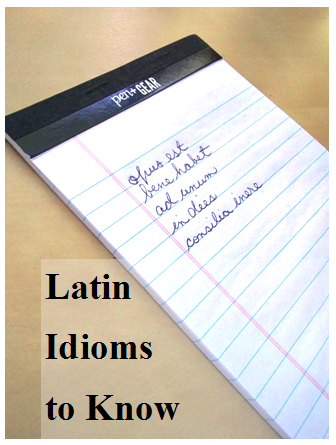 pen+GEAR
opus est
bene habet
ad unum
in dies
consilia inere
Latin
Idioms
to Know